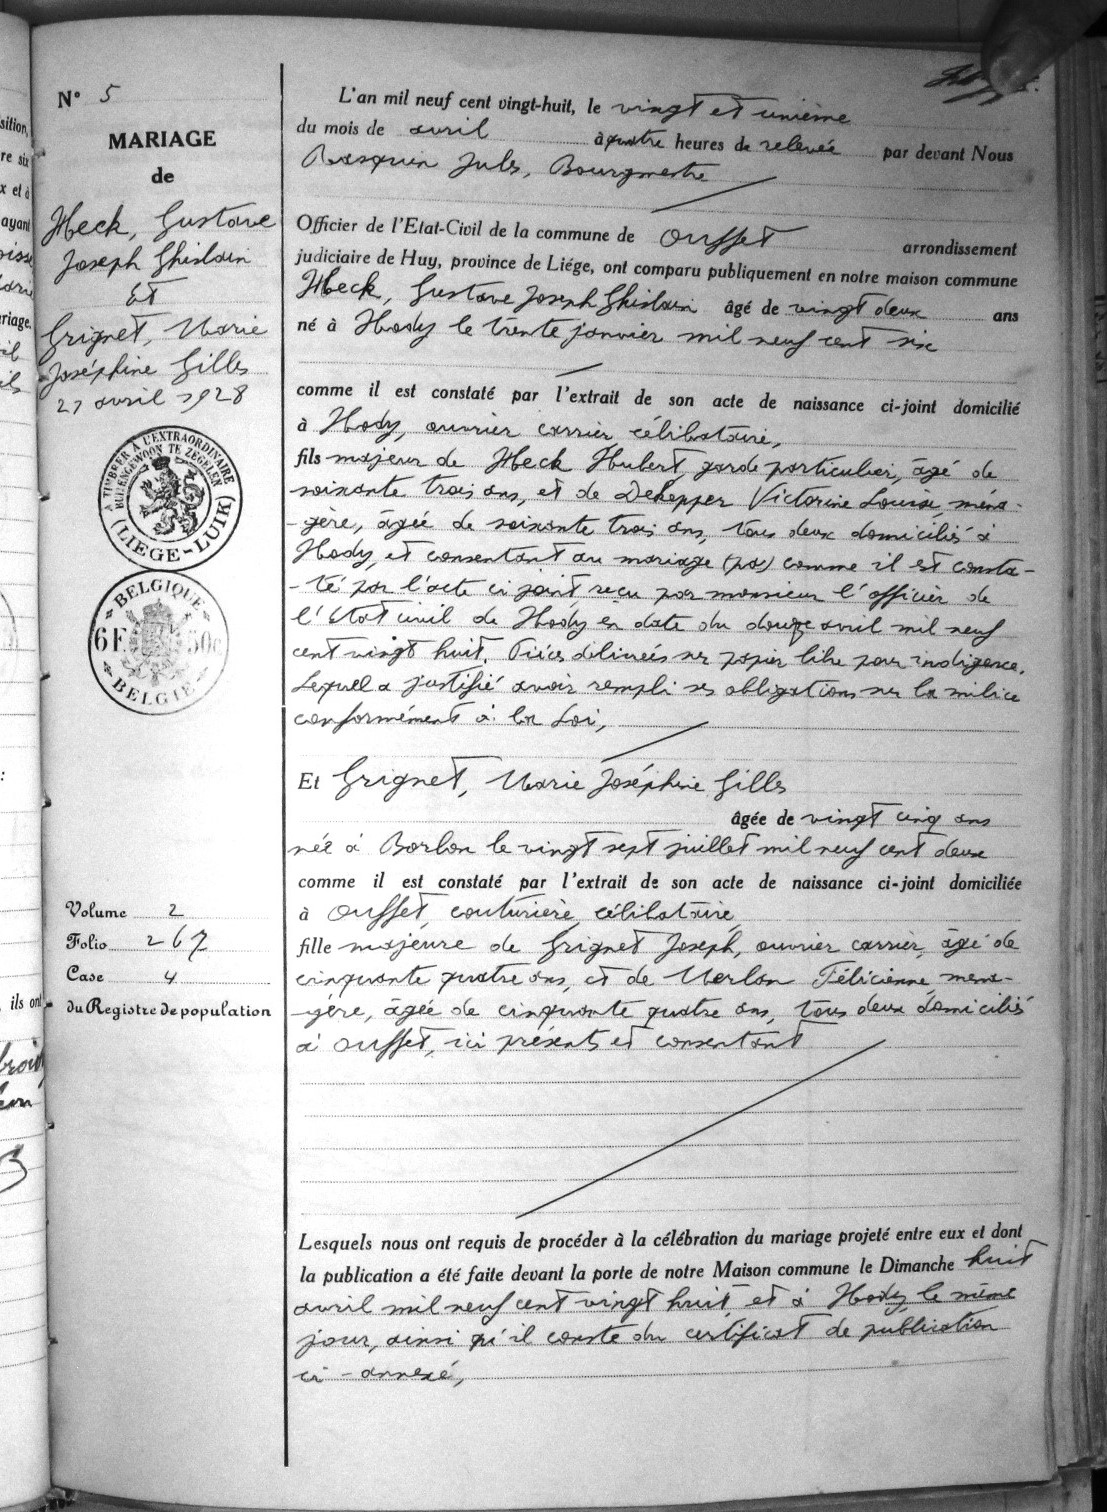 N° 5
MARIAGE
de
Heck, Gustave
Joseph Ghislain
Et
Grignet, Marie
Joséphine Gilles
21 avril 1928
TIMBRER À L'EXTRAORDINAIRE
BUITENGEWOON TE ZEGELEN
(LIEGE-LUIK)
BELGIQUE
6F 50c
BELGIE
Volume 2
Folio 267
Case 4
du Registre de population
L'an mil neuf cent vingt-huit, le vingt et unième
du mois de avril à quatre heures de relevée par devant Nous
Rasquin Jules, Bourgmestre
Officier de l'Etat-Civil de la commune de Ouffet arrondissement
judiciaire de Huy, province de Liége, ont comparu publiquement en notre maison commune
Heck, Gustave Joseph Ghislain âgé de vingt deux ans
né à Hody le trente janvier mil neuf cent six
comme il est constaté par l'extrait de son acte de naissance ci-joint domicilié
à Hody, ouvrier carrier, célibataire,
fils majeur de Heck Hubert, garde particulier, âgé de
soixante trois ans, et de Victorine Louise, ména-
-gère, âgée de soixante trois ans, tous deux domiciliés à
Hody, et consentant au mariage (pas) comme il est consta-
-té par l'acte ci joint reçu par monsieur l'officier de
l'Etat civil de Hody en date du douze avril mil neuf
cent vingt huit. Pièces délivrées sur papier libre pour indigence.
Lequel a justifié avoir rempli ses obligations sur la milice
conformément à la Loi,
Et Grignet, Marie Joséphine Gilles
âgée de vingt cinq ans
née à Borlon le vingt sept juillet mil neuf cent deux
comme il est constaté par l'extrait de son acte de naissance ci-joint domiciliée
à Ouffet, couturière, célibataire
fille majeure de Grignet Joseph, ouvrier carrier, âgé de
cinquante quatre ans, et de Merlan Félicienne, ména-
-gère, âgée de cinquante quatre ans, tous deux domiciliés
à Ouffet, ici présents et consentant
Lesquels nous ont requis de procéder à la célébration du mariage projeté entre eux et dont
la publication a été faite devant la porte de notre Maison commune le Dimanche huit
avril mil neuf cent vingt huit et à Hody le même
jour, ainsi qu'il conste du certificat de publication
ci-annexé,